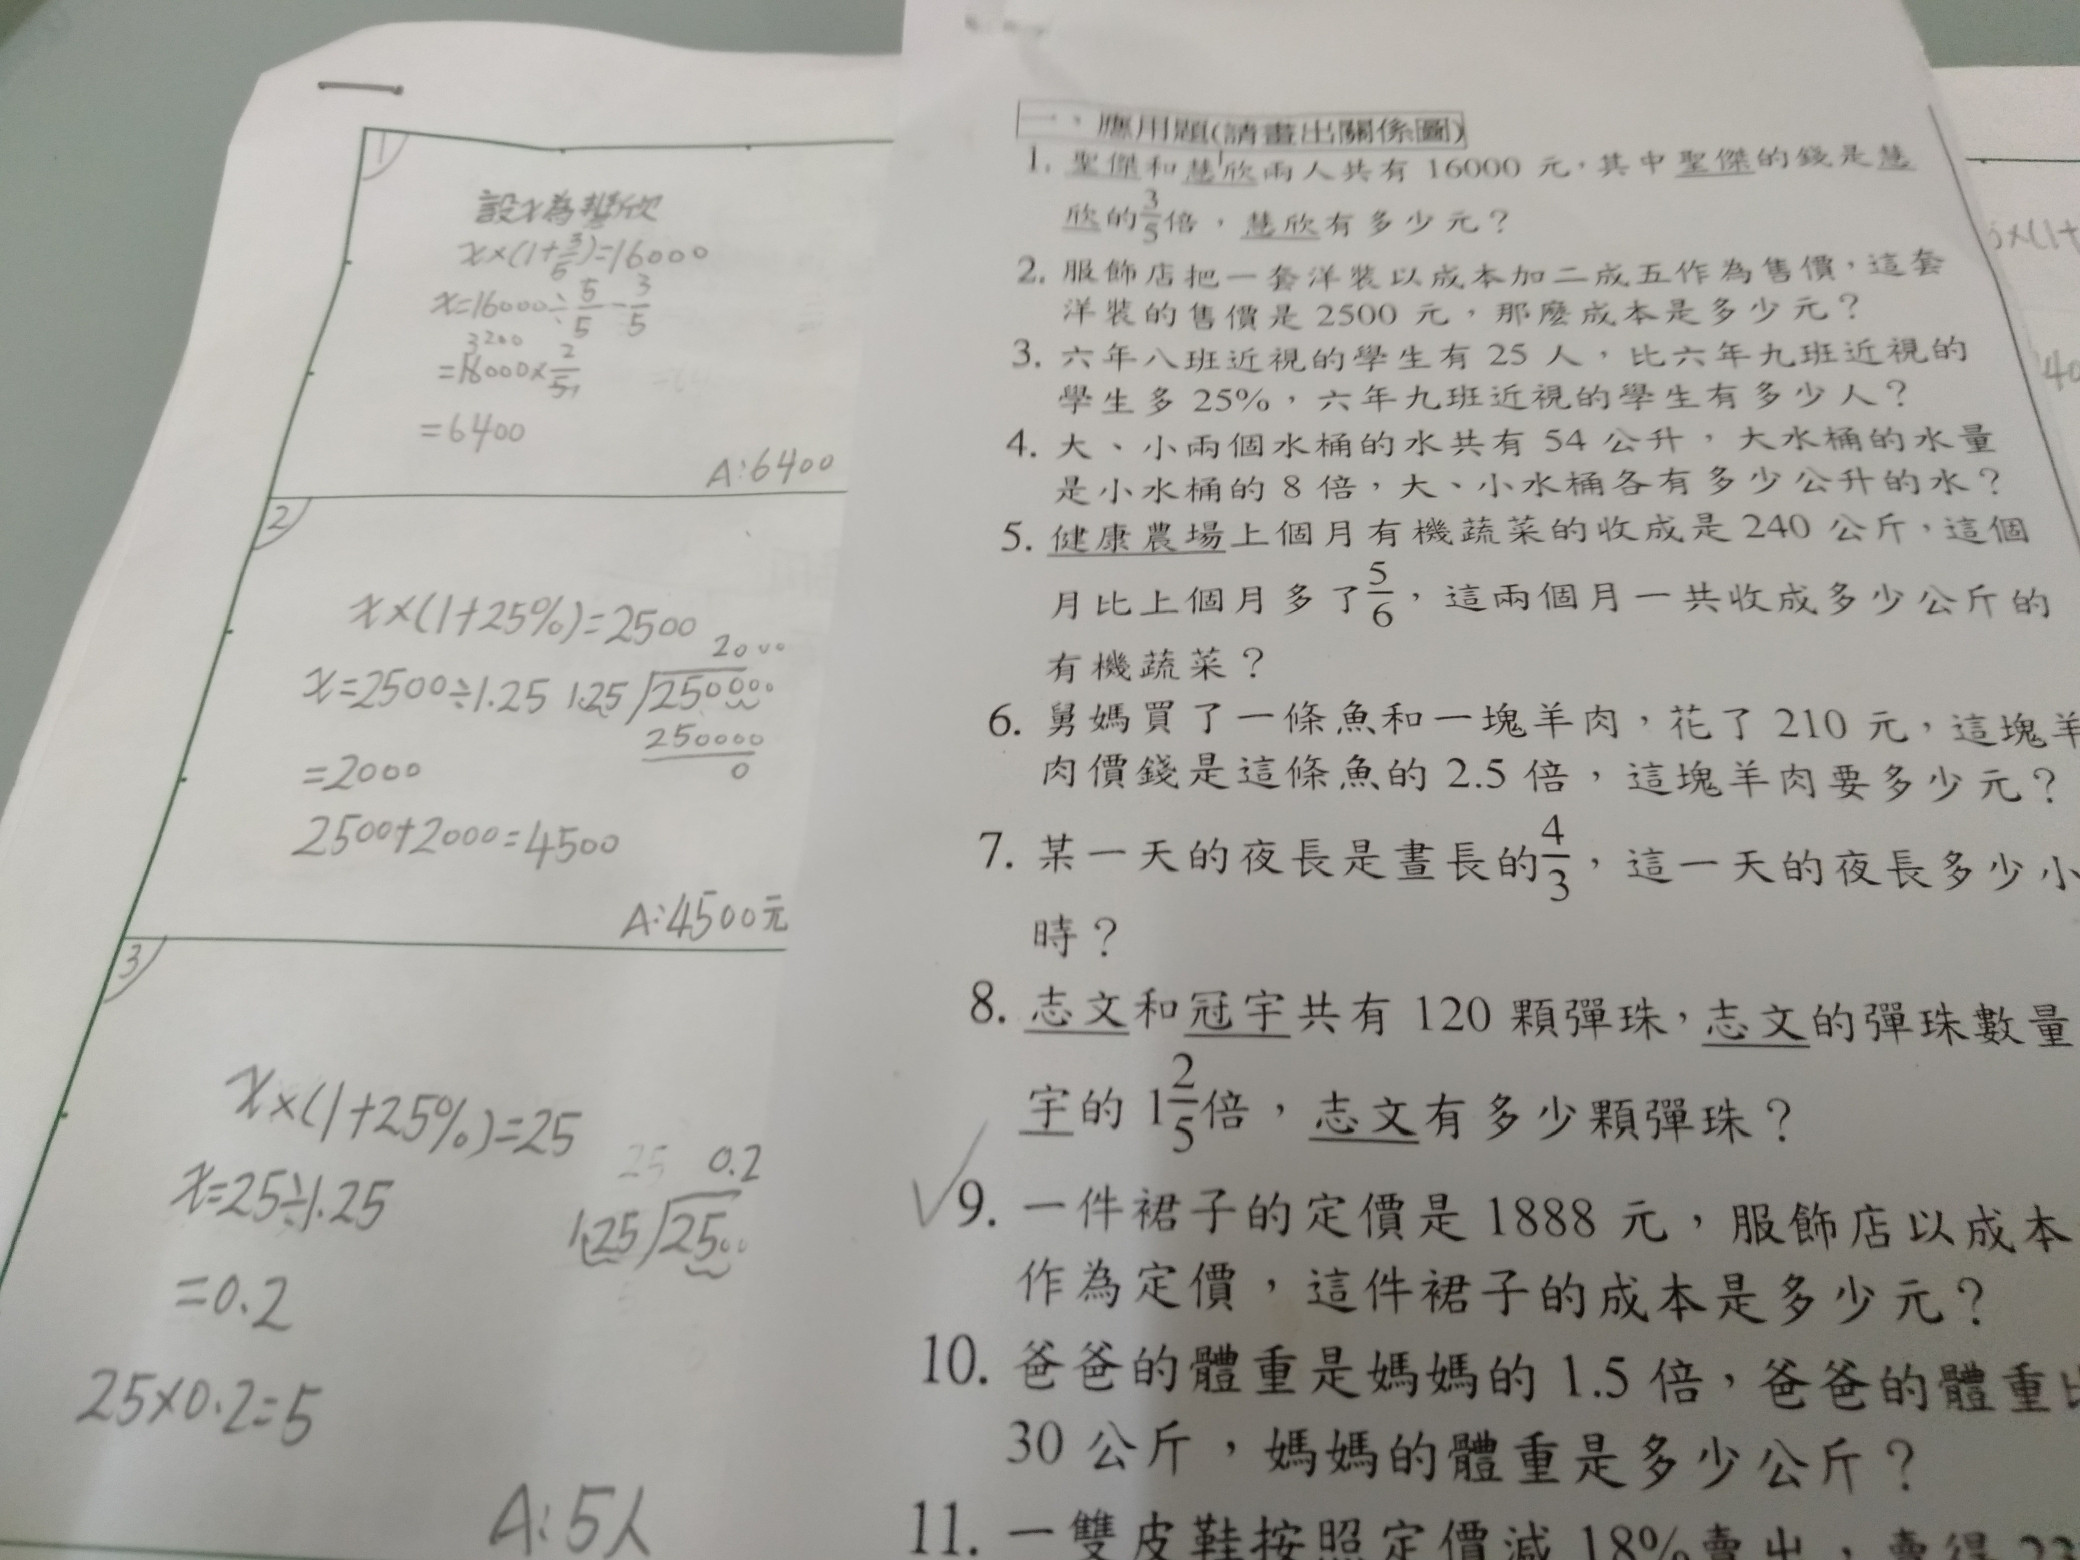 1
設x為慧欣
x×(1+3/5)=16000
x=16000÷5/5-3/5
3200
=16000×2/5
=6400
A:6400
2
x×(1+25%)=2500
2000
x=2500÷1.25 1.25 250000
250000
=2000
0
2500+2000=4500
A:4500元
3
x×(1+25%)=25
25 0.2
x=25÷1.25
1.25 2500
=0.2
25×0.2=5
A:5人
一、應用題(請畫出關係圖)
1. 聖傑和慧欣兩人共有 16000 元,其中聖傑的錢是慧
欣的3/5倍,慧欣有多少元?
2. 服飾店把一套洋裝以成本加二成五作為售價,這套
洋裝的售價是 2500 元,那麼成本是多少元?
3. 六年八班近視的學生有 25 人,比六年九班近視的
學生多 25%,六年九班近視的學生有多少人?
4. 大、小兩個水桶的水共有 54 公升,大水桶的水量
是小水桶的 8 倍,大、小水桶各有多少公升的水?
5. 健康農場上個月有機蔬菜的收成是 240 公斤,這個
月比上個月多了5/6,這兩個月一共收成多少公斤的
有機蔬菜?
6. 舅媽買了一條魚和一塊羊肉,花了 210 元,這塊羊
肉價錢是這條魚的 2.5 倍,這塊羊肉要多少元?
7. 某一天的夜長是晝長的4/3,這一天的夜長多少小
時?
8. 志文和冠宇共有 120 顆彈珠,志文的彈珠數量
宇的 1 2/5倍,志文有多少顆彈珠?
9. 一件裙子的定價是 1888 元,服飾店以成本
作為定價,這件裙子的成本是多少元?
10. 爸爸的體重是媽媽的 1.5 倍,爸爸的體重比
30 公斤,媽媽的體重是多少公斤?
11. 一雙皮鞋按照定價減 18%賣出,賣得
×(1+
40